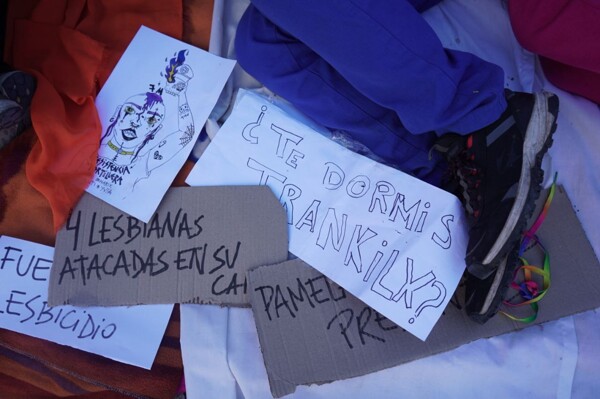 7M
¿TE DORMIS
TRANKILX?
4 LESBIANAS
ATACADAS EN SU
CA
FUE
LESBICIDIO
PAMEL
PRE